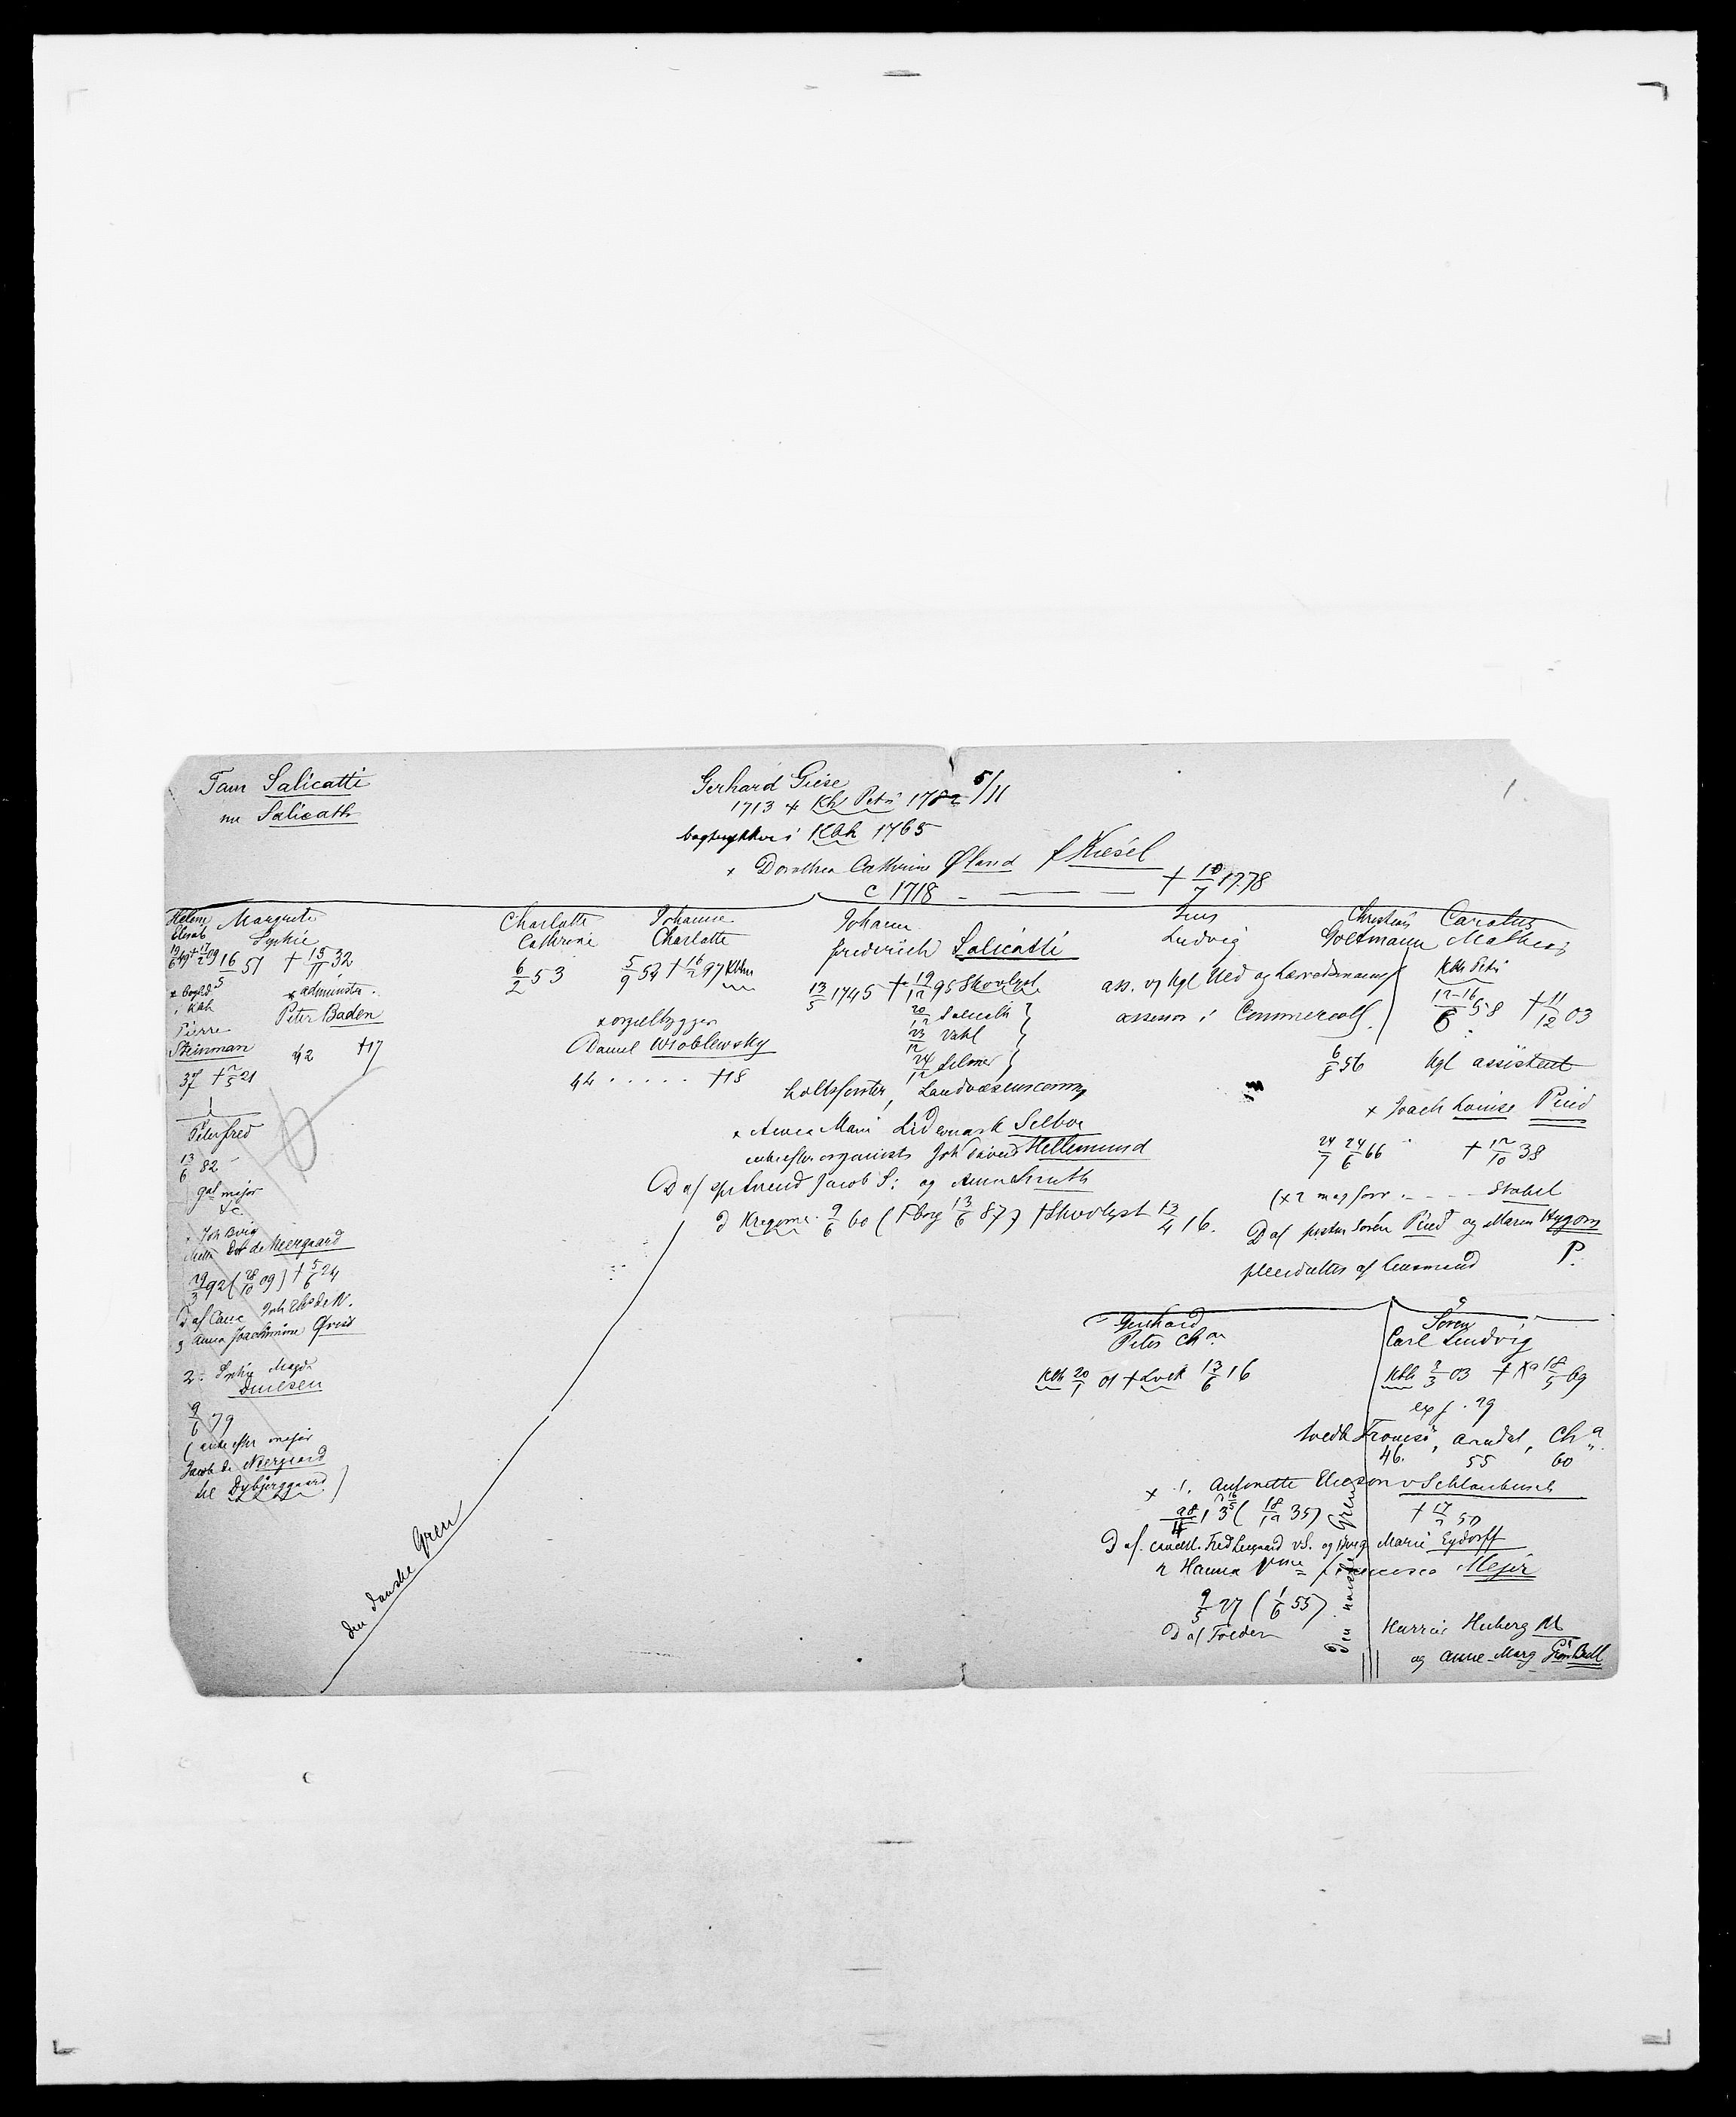 Fam Salicatti
nu Salicath
Gerhard Giese
1713 + Kbh Petri 1782 5/11
bogtrykker i Kbh 1765
x Dorothea Cathrine Øland f Kiesel
c 1718 - — — — † 10/7 1778
Helene
Elisab
19/6 49 † 17/2 09
x bogld
i Kbh
Pierre
Steinman
37 † 2/5 21
Peter fred
13/6 82
gal major
x Joh Bvig
Mette Dot de Neergaard
29/3 92 (28/10 09) † 5/6 24
D af Canc Joh Ths de N.
og Anna Joachimine Qvist
2: Sophie Magd
9/6 79
(enke efter major
Jacob de Neergaard
til Dybjerggaard)
Margrete
Sophie
16/5 51 † 15/11 32
x administr.
Peter Baden
42 †17
Charlotte
Cathrine
6/2 53
Johanne
Charlotte
5/9 54 † 16/2 97 Kbhn
x orgelbygger
Daniel Wroblewsky
44 . . . . . †18
Johann
frederich Salicatti
13/5 1745 † 19/12 95 Skovlyst
20/12 Salicath
23/12 Vahl
24/12 Selmer
holtsforster, Landvæsenscomm
x Anna Marie Lidemark Selboe
enke efter organist Joh David Hellemund
D af sptr Svend Jacob S: og Anna Smith
d Kregome 9/6 60 (Fborg 13/6 87) † Skovlyst 13/4 16.
Jens
Ludvig
ass. v/ Kgl Uld og Lærredsmang
assessor i Commercoll.
Christian Carolus
Goltmann Mathias
Kbh Petri
12-16/6 58 † 11/12 03
6/8 56 Kgl assistent
x Joach Louise Pind
24/7 24/6 66 † 12/10 38
(x 2 mag forv . - - - Stabel
D af prsten Sören Pind og Maren Hygom
P.
Gerhard
Peter Chr.
Kbh 20/1 01 † Lvek 13/6 16
Sören
Carl Ludvig
Kbh 3/3 03 † Xa 18/5 69
ex j. 29
Tvedb Tromsö, Arndal, Cha
46. 55 60
x 1. Antonette v Schlanbusch
(18/12 35) † 17/2 50
D af. Fred v S. og Marie Eydorff
2 Hanna Francisca Mejer
9/5 27 (1/6 55)
D af Tolder
M
og Anne Marg
den danske Gren
Den norske Gren